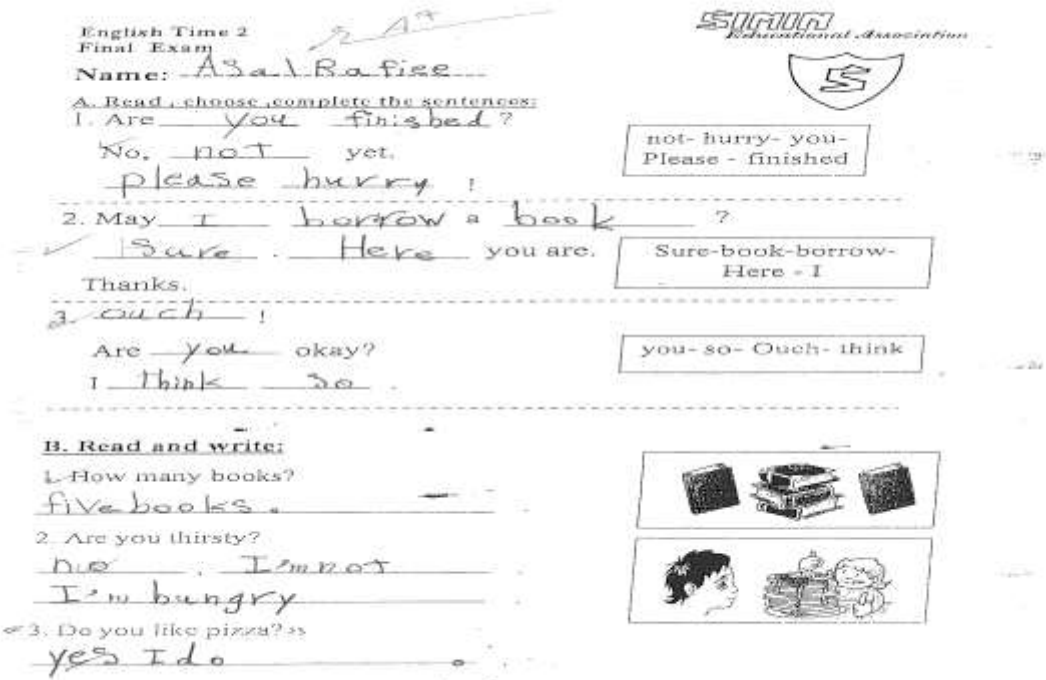 English Time 2
Final Exam
A+
SIMIN
Educational Association
Name: Asal Rafiee
S
A. Read , choose ,complete the sentences:
1. Are you finished ?
No, not yet.
please hurry !
not- hurry- you-
Please - finished
2. May I borrow a book ?
Sure . Here you are.
Thanks.
Sure-book-borrow-
Here - I
3. ouch !
Are you okay?
I think so .
you- so- Ouch- think
B. Read and write:
1. How many books?
five books .
2. Are you thirsty?
no . I'm not
I'm hungry
3. Do you like pizza?
yes I do .